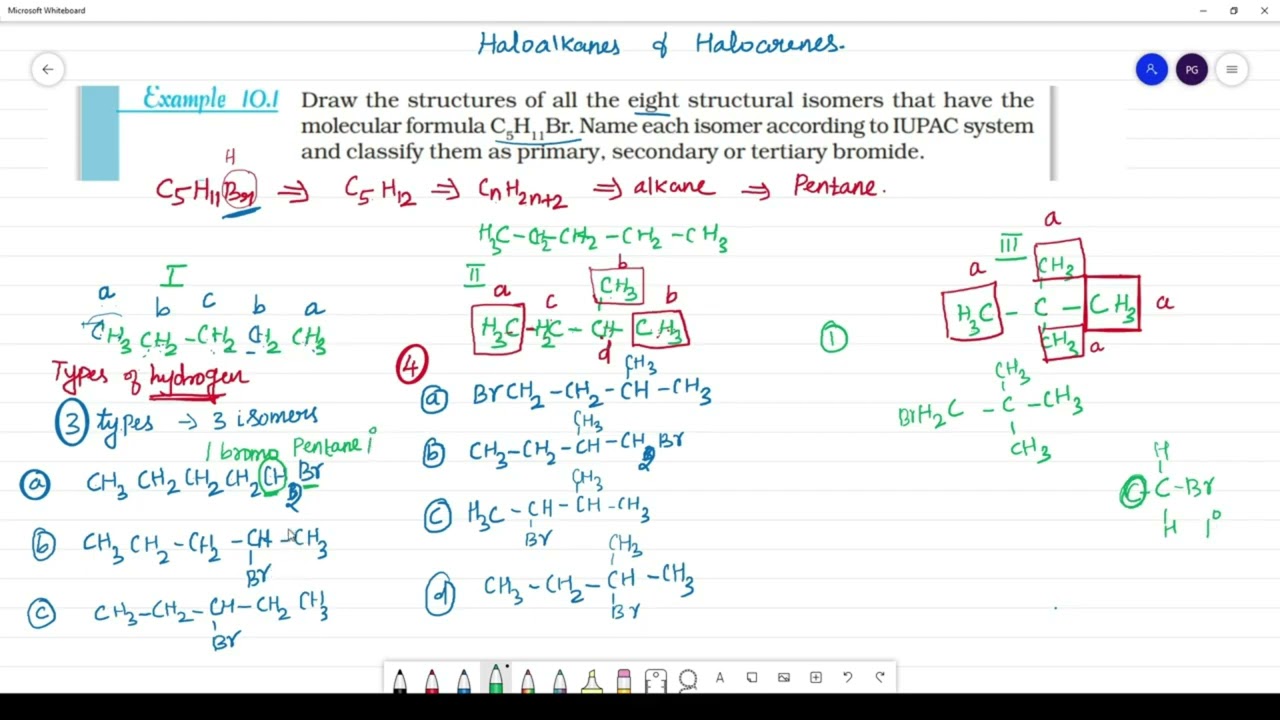 Microsoft Whiteboard
Haloalkanes & Haloarenes.
PG
Example 10.1 Draw the structures of all the eight structural isomers that have the
molecular formula C₅H₁₁Br. Name each isomer according to IUPAC system
and classify them as primary, secondary or tertiary bromide.
H
C₅H₁₁Br ⇒ C₅H₁₂ ⇒ CnH₂n+₂ ⇒ alkane ⇒ Pentane.
H₃C–CH₂–CH₂–CH₂–CH₃
I
a b c b a
CH₃ CH₂–CH₂ CH₂ CH₃
Types of hydrogen
③ types → 3 isomers
1 bromo Pentane 1°
ⓐ CH₃ CH₂ CH₂ CH₂ CH₂ Br
ⓑ CH₃ CH₂–CH₂–CH–CH₃
Br
ⓒ CH₃–CH₂–CH–CH₂ CH₃
Br
II
b
CH₃
a c b
H₃C–H₂C–CH–CH₃
d
④
CH₃
ⓐ BrCH₂–CH₂–CH–CH₃
CH₃
ⓑ CH₃–CH₂–CH–CH₂Br
CH₃
ⓒ H₃C–CH–CH–CH₃
Br
CH₃
ⓓ CH₃–CH₂–CH–CH₃
Br
III
a
CH₃
a
① H₃C–C–CH₃ a
CH₃
a
CH₃
BrH₂C–C–CH₃
CH₃
H
C C–Br
H 1°
A